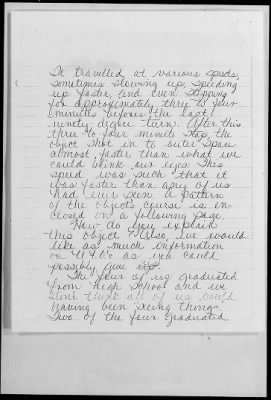 It travelled at various speeds,
sometimes slowing up, speeding
up faster, and even stopping
for approximately three to four
minutes before the last
ninety degree turn. After this
three to four minute stop, the
object shot in to outer space
almost faster than what we
could blink our eyes. This
speed was such that it
was faster than any of us
had ever seen. A pattern
of the objects course is en-
closed on a following page.
How do you explain
this object? Also, we would
like as much information
on U.F.O's as you could
possibly give
The four of us graduated
from high School and we
don't think all of us could
having been "seeing things".
Two of the four graduated